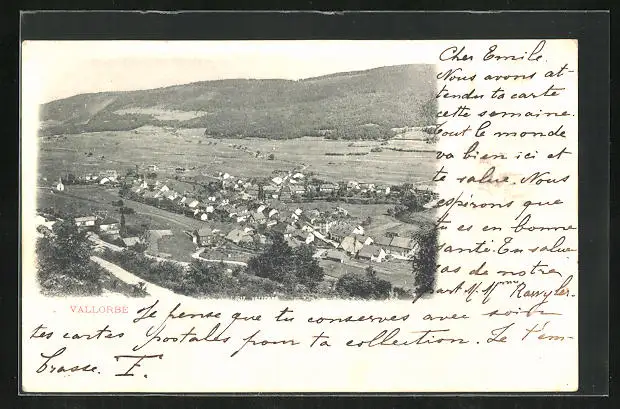 Cher Emile.
Nous avons at-
tendu ta carte
cette semaine.
Tout le monde
va bien ici et
te salue. Nous
espérons que
tu es en bonne
santé. Tu salue
ras de notre
part M. Mme
VALLORBE
Je pense que tu conserves avec soin
tes cartes postales pour ta collection. Je t'em-
brasse. F.